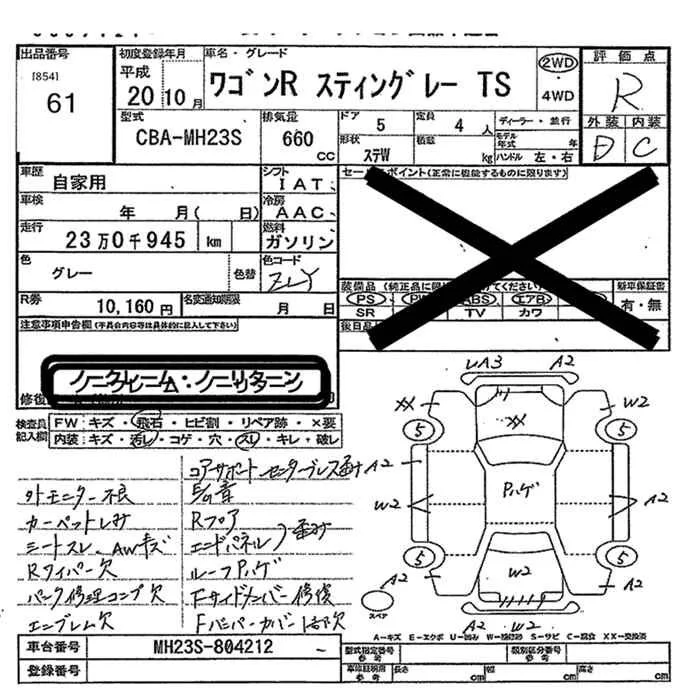 出品番号
[854]
61
初度登録年月
平成
20 10月
車名・グレード
ワゴンR スティングレー TS
2WD
・4WD
評価点
R
外装 内装
D C
型式
CBA-MH23S
排気量
660
cc
ドア
5
定員
4 人
ディーラー・並行
形状
ステW
積載
kg
モデル年式 年
ハンドル 左・右
車歴
自家用
シフト
IAT
車検
年 月( 日)
冷房
AAC
走行
23万0千945 km
燃料
ガソリン
色
グレー
色替
色コード
ZLY
R券
10,160円
名変通知期限
月 日
セールスポイント(正常に機能するものに限ります)
装備品
PS
ABS エアB
SR TV カワ
新車保証書
有・無
注意事項申告欄(不具合内容等は具体的に記入して下さい)
ノークレーム・ノーリターン
検査員記入欄
FW:キズ・飛石・ヒビ割・リペア跡・×要
内装:キズ・汚レ・コゲ・穴・スレ・キレ・破レ
コアサポート センターブレス歪み
外モニター不良
カーペットしみ
シートスレ、AWキズ
Rワイパー欠
パンク修理コンプ欠
エンブレム欠
Rフロア
エンドパネル 歪み
ルーフPハゲ
Fサイドメンバー修復
Fバンパーカバー1部欠
UA3 A2
XX XX W2
5 5
A2
W2 Pハゲ A2
5 5
A2 W2 A2
スペア
A2 W2
A-キズ E-エクボ U-凹み W-補修跡 S-サビ C-腐食 XX-交換済
車台番号
MH23S-804212
登録番号
型式指定番号
参考
類別区分番号
参考
車庫証明用
参考
長さ cm
幅 cm
高さ cm